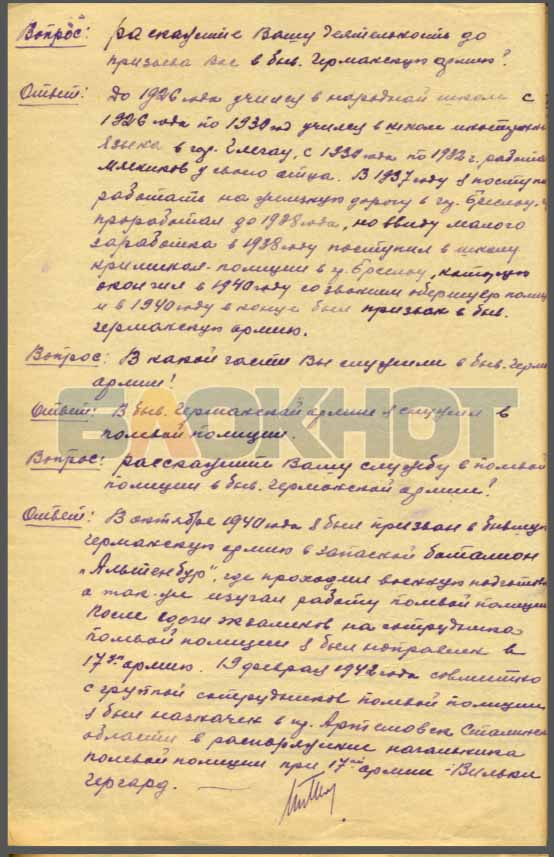 Вопрос: раскажите Вашу деятельность до
призыва Вас в быв. Германскую армию?
Ответ: До 1926 года учился в народной школе с
1926 года по 1930 год учился в школе
языка в гор. с 1930 года по 1932 г. работал
у своего отца. В 1937 году я поступил
работать на железную дорогу в гор. Бреслау,
проработал до 1938 года, но ввиду малого
заработка в 1938 году поступил в школу
полиции в г. Бреслау, которую
окончил в 1940 году со званием полиции
и в 1940 году в конце был призван в быв.
германскую армию.
Вопрос: В какой части Вы служили в быв. герм.
армии?
БЛОКНОТ
Ответ: В быв. Германской армии я служил в
полевой полиции.
Вопрос: расскажите Вашу службу в полевой
полиции в быв. германской армии?
Ответ: В октябре 1940 года я был призван в бывшую
германскую армию в запасной баталион
"Альтенбур", где проходил военную подготовку
а так-же изучал работу полевой полиции
После сдачи экзаменов на сотрудника
полевой полиции я был направлен в
17ую армию. 19 февраля 1942 года совместно
с группой сотрудников полевой полиции
я был назначен в гор. Артемовск Сталинской
области в распоряжение начальника
полевой полиции при 17ой армии - Вильки
Гергард.